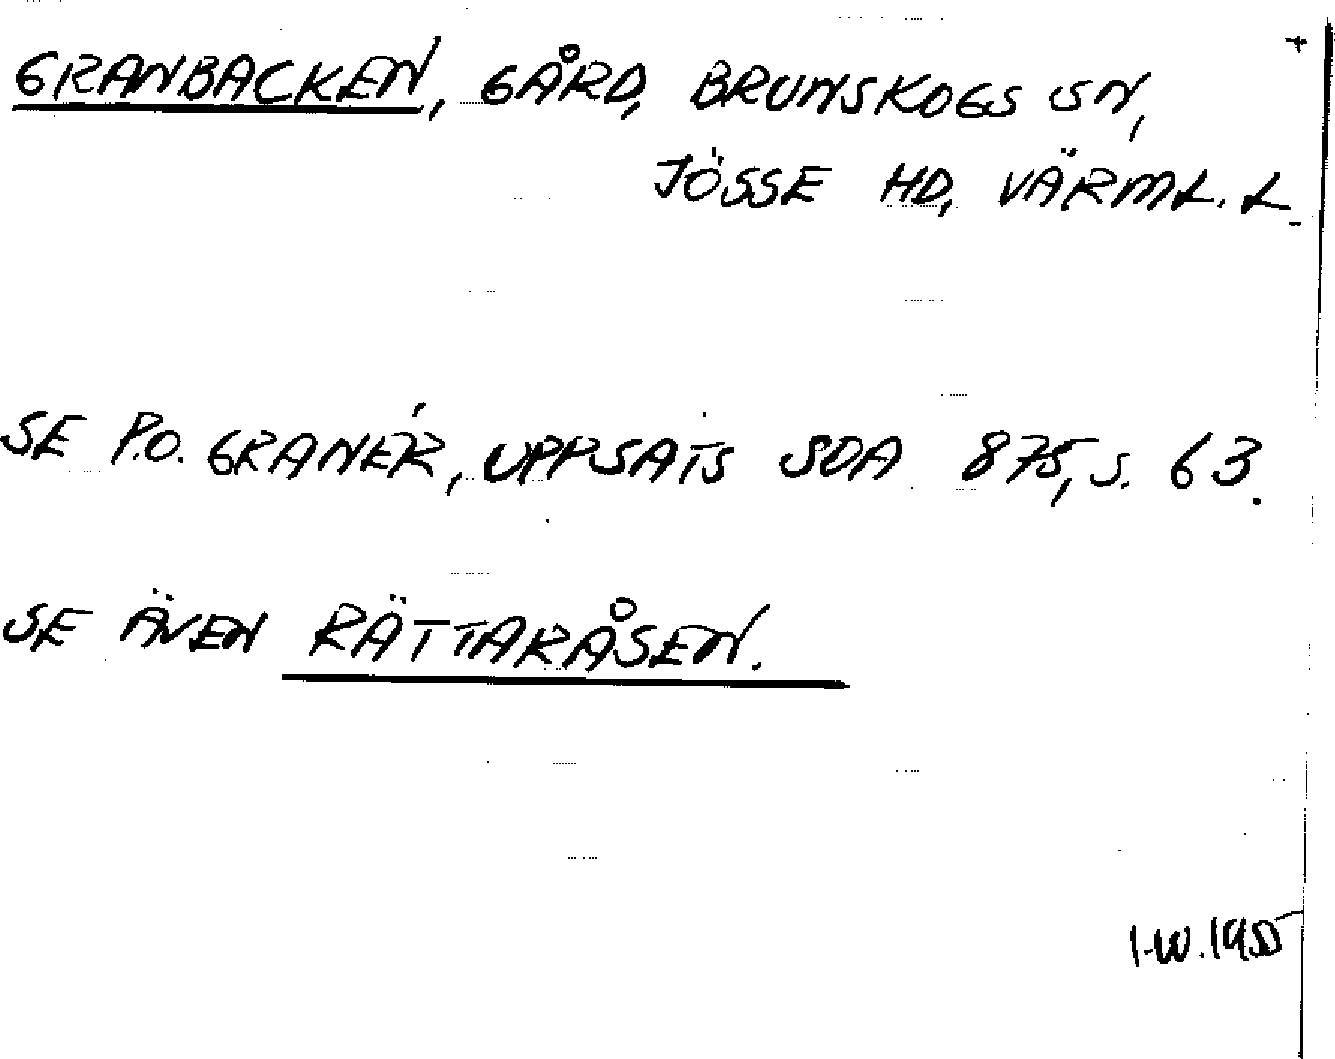 GRANBACKEN, GÅRD, BRUNSKOGS SN,
JÖSSE HD, VÄRML. L.
SE P.O. GRANÉR, UPPSATS SOA 875, S. 63.
SE ÄVEN RÄTTARÅSEN.